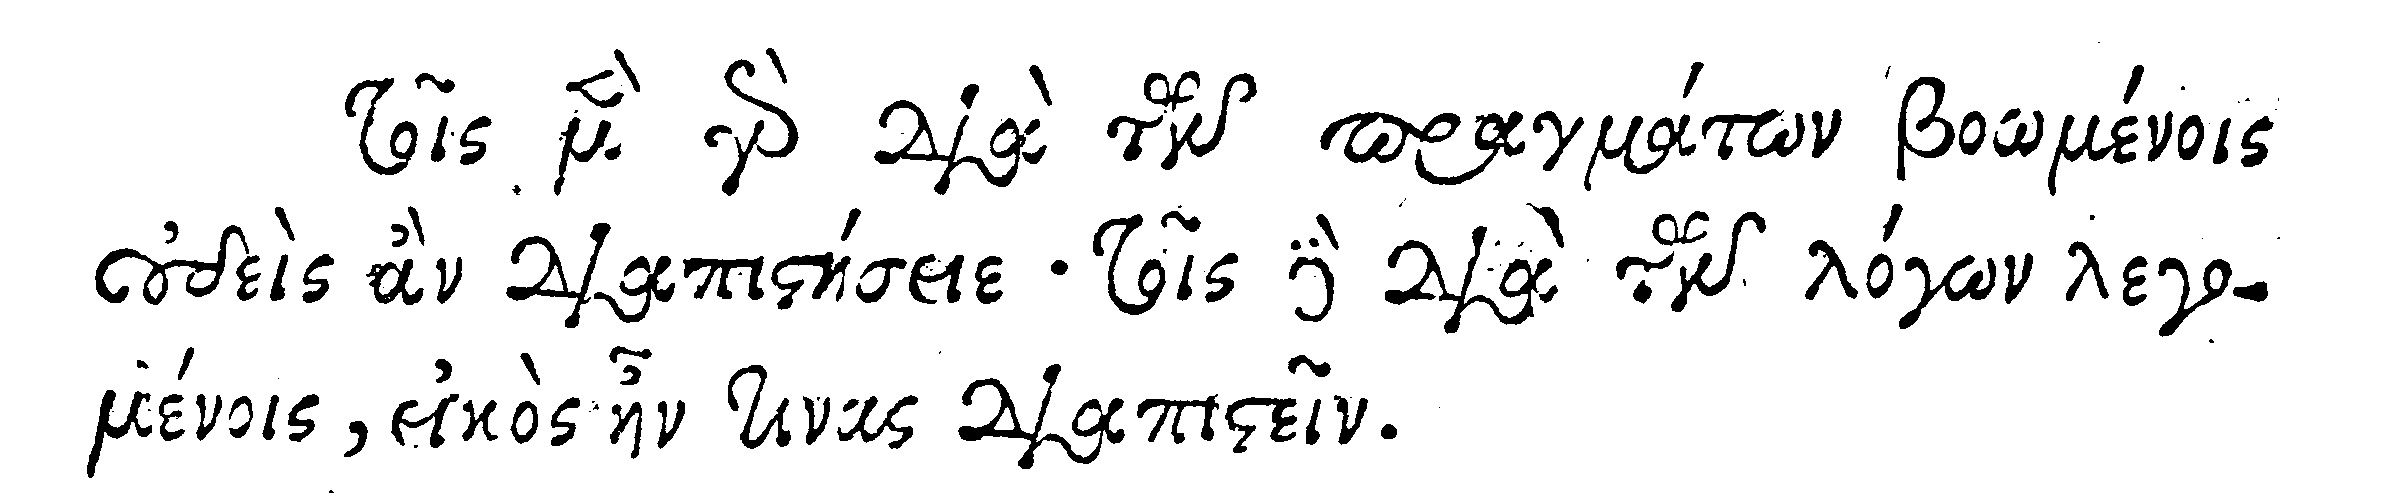 τοῖς μὲν γὰρ διὰ τῶν πραγμάτων βοωμένοις
οὐδεὶς ἂν διαπιστήσειε · τοῖς δὲ διὰ τῶν λόγων λεγο-
μένοις, εἰκὸς ἦν τινας διαπιστεῖν.